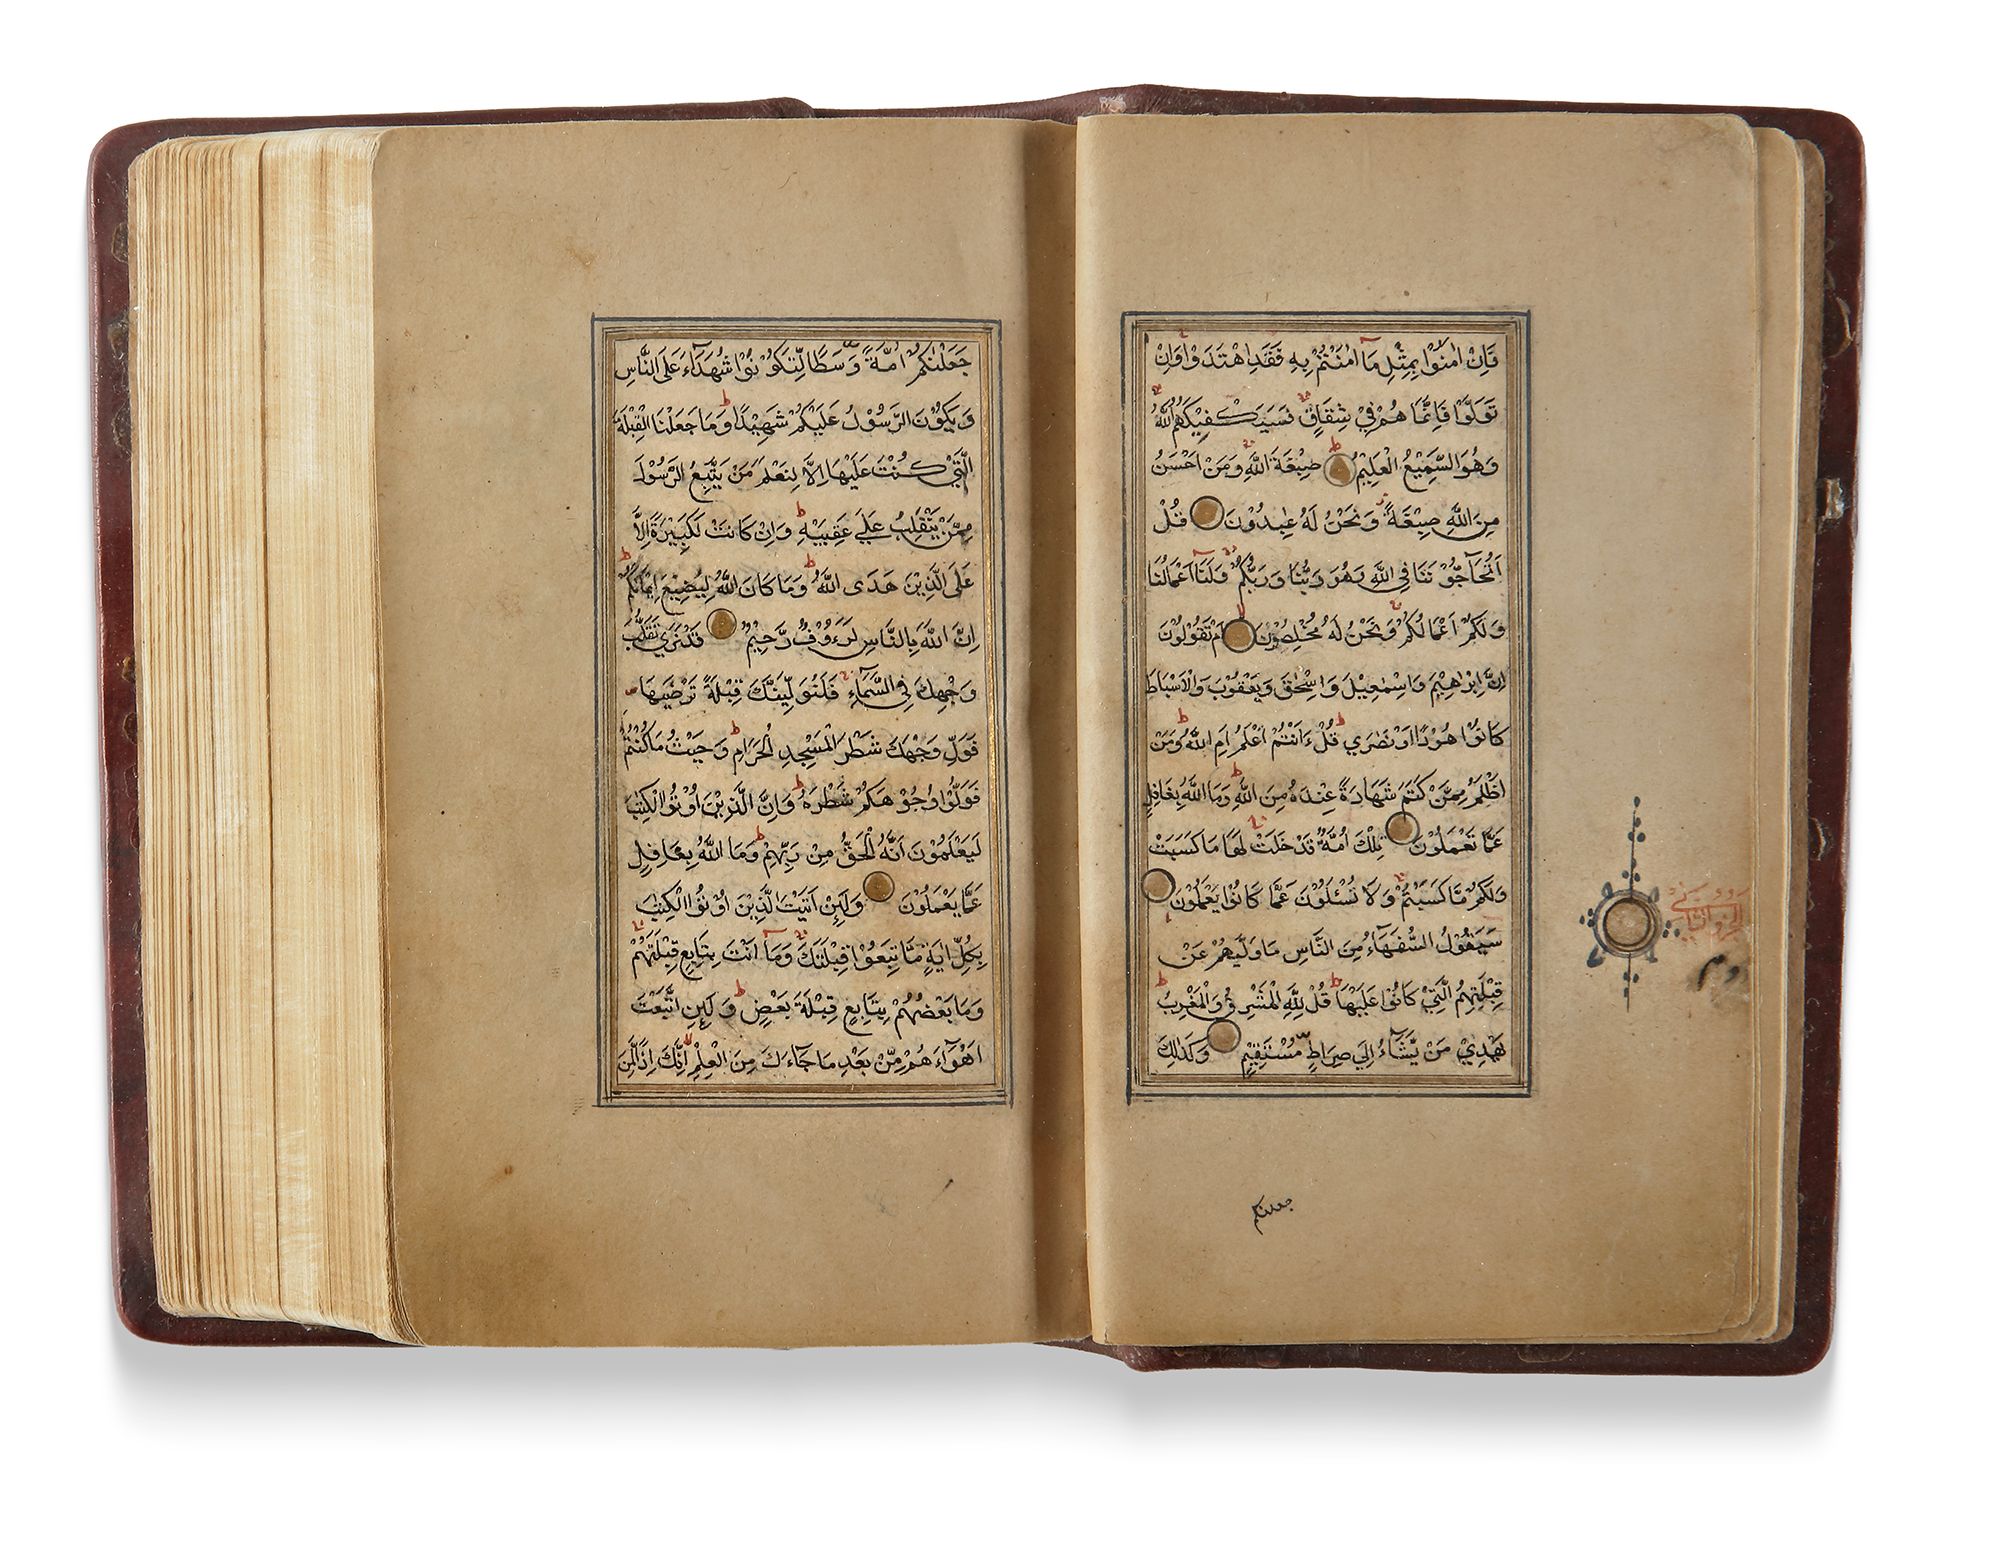 فَاِنْ اٰمَنُوْا بِمِثْلِ مَآ اٰمَنْتُمْ بِهٖ فَقَدِ اهْتَدَوْا وَاِنْ
تَوَلَّوْا فَاِنَّمَا هُمْ فِيْ شِقَاقٍ فَسَيَكْفِيْكَهُمُ اللّٰهُ
وَهُوَ السَّمِيْعُ الْعَلِيْمُ صِبْغَةَ اللّٰهِ وَمَنْ اَحْسَنُ
مِنَ اللّٰهِ صِبْغَةً وَنَحْنُ لَهٗ عٰبِدُوْنَ قُلْ
اَتُحَآجُّوْنَنَا فِي اللّٰهِ وَهُوَ رَبُّنَا وَرَبُّكُمْ وَلَنَآ اَعْمَالُنَا
وَلَكُمْ اَعْمَالُكُمْ وَنَحْنُ لَهٗ مُخْلِصُوْنَ اَمْ تَقُوْلُوْنَ
اِنَّ اِبْرٰهِيْمَ وَاِسْمٰعِيْلَ وَاِسْحٰقَ وَيَعْقُوْبَ وَالْاَسْبَاطَ
كَانُوْا هُوْدًا اَوْ نَصٰرٰي قُلْ ءَاَنْتُمْ اَعْلَمُ اَمِ اللّٰهُ وَمَنْ
اَظْلَمُ مِمَّنْ كَتَمَ شَهَادَةً عِنْدَهٗ مِنَ اللّٰهِ وَمَا اللّٰهُ بِغَافِلٍ
عَمَّا تَعْمَلُوْنَ تِلْكَ اُمَّةٌ قَدْ خَلَتْ لَهَا مَا كَسَبَتْ
وَلَكُمْ مَّا كَسَبْتُمْ وَلَا تُسْئَلُوْنَ عَمَّا كَانُوْا يَعْمَلُوْنَ
سَيَقُوْلُ السُّفَهَآءُ مِنَ النَّاسِ مَا وَلّٰيهُمْ عَنْ
قِبْلَتِهِمُ الَّتِيْ كَانُوْا عَلَيْهَا قُلْ لِلّٰهِ الْمَشْرِقُ وَالْمَغْرِبُ
يَهْدِيْ مَنْ يَّشَآءُ اِلٰي صِرَاطٍ مُّسْتَقِيْمٍ وَكَذٰلِكَ
جعلنكم
جَعَلْنٰكُمْ اُمَّةً وَّسَطًا لِّتَكُوْنُوْا شُهَدَآءَ عَلَي النَّاسِ
وَيَكُوْنَ الرَّسُوْلُ عَلَيْكُمْ شَهِيْدًا وَمَا جَعَلْنَا الْقِبْلَةَ
الَّتِيْ كُنْتَ عَلَيْهَا اِلَّا لِنَعْلَمَ مَنْ يَّتَّبِعُ الرَّسُوْلَ
مِمَّنْ يَّنْقَلِبُ عَلٰي عَقِبَيْهِ وَاِنْ كَانَتْ لَكَبِيْرَةً اِلَّا
عَلَي الَّذِيْنَ هَدَي اللّٰهُ وَمَا كَانَ اللّٰهُ لِيُضِيْعَ اِيْمَانَكُمْ
اِنَّ اللّٰهَ بِالنَّاسِ لَرَءُوْفٌ رَّحِيْمٌ قَدْ نَرٰي تَقَلُّبَ
وَجْهِكَ فِي السَّمَآءِ فَلَنُوَلِّيَنَّكَ قِبْلَةً تَرْضٰيهَا
فَوَلِّ وَجْهَكَ شَطْرَ الْمَسْجِدِ الْحَرَامِ وَحَيْثُ مَا كُنْتُمْ
فَوَلُّوْا وُجُوْهَكُمْ شَطْرَهٗ وَاِنَّ الَّذِيْنَ اُوْتُوا الْكِتٰبَ
لَيَعْلَمُوْنَ اَنَّهُ الْحَقُّ مِنْ رَّبِّهِمْ وَمَا اللّٰهُ بِغَافِلٍ
عَمَّا يَعْمَلُوْنَ وَلَئِنْ اَتَيْتَ الَّذِيْنَ اُوْتُوا الْكِتٰبَ
بِكُلِّ اٰيَةٍ مَّا تَبِعُوْا قِبْلَتَكَ وَمَآ اَنْتَ بِتَابِعٍ قِبْلَتَهُمْ
وَمَا بَعْضُهُمْ بِتَابِعٍ قِبْلَةَ بَعْضٍ وَلَئِنِ اتَّبَعْتَ
اَهْوَآءَهُمْ مِّنْ بَعْدِ مَا جَآءَكَ مِنَ الْعِلْمِ اِنَّكَ اِذًا لَّمِنَ